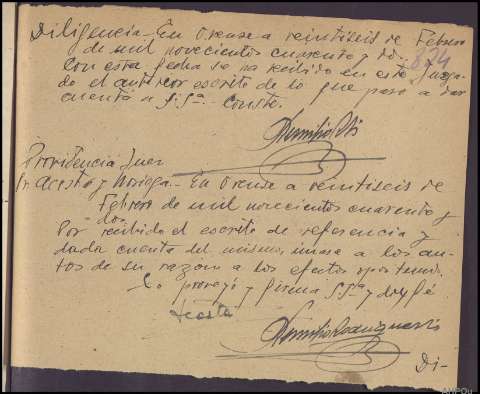 Diligencia.- En Orense a veintiseis de Febrero
de mil novecientos cuarenta y do-
Con esta fecha se ha recibido en este Juzga-
do el anterior escrito de lo que paso a dar
cuenta a S.Sª.- Consta.
874
Providencia Juez
Sr. Acosta y Noriega.- En Orense a veintiseis de
Febrero de mil novecientos cuarenta y
dos.
Por recibido el escrito de referencia y
dada cuenta del mismo, unase a los au-
tos de su razón a los efectos oportunos.
Lo proveyó y firma S.Sª y doy fé
Acosta
Di-
AHPOu